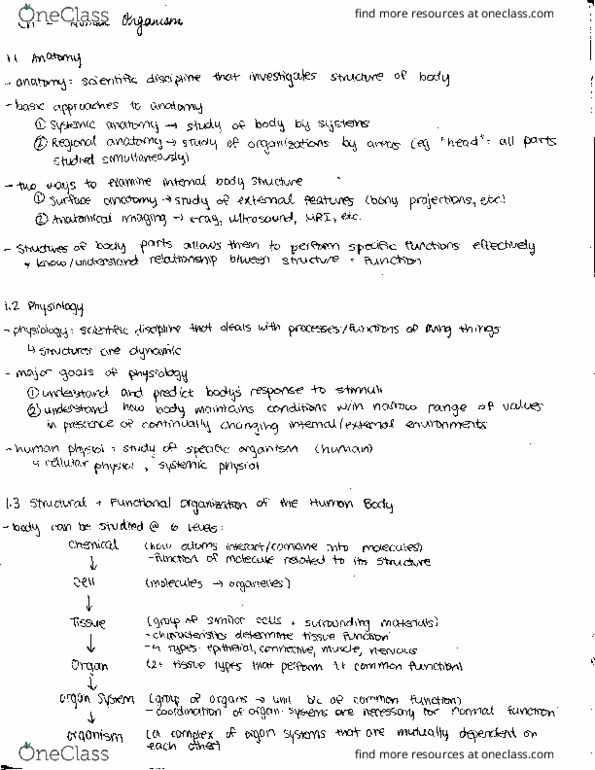 OneClass
find more resources at oneclass.com
Human Organism
1.1 Anatomy
- anatomy: scientific discipline that investigates structure of body
- basic approaches to anatomy
① Systemic anatomy → study of body by systems
② Regional anatomy → study of organizations by areas (eg "head": all parts
studied simultaneously)
- two ways to examine internal body structure
① Surface anatomy → study of external features (bony projections, etc.)
② Anatomical imaging → x-ray, ultrasound, MRI, etc.
- Structures of body parts allows them to perform specific functions effectively
know/understand relationship b/ween structure + function
1.2 Physiology
- physiology: scientific discipline that deals with processes/functions of living things
↳ structures are dynamic
- major goals of physiology
① understand and predict body's response to stimuli
② understand how body maintains conditions w/in narrow range of values
in presence of continually changing internal/external environments
- human physiol: study of specific organism (human)
↳ cellular physiol, systemic physiol
1.3 Structural + Functional Organization of the Human Body
- body can be studied @ 6 levels:
Chemical (how atoms interact/combine into molecules)
- function of molecule related to its structure
↓
Cell (molecules → organelles)
↓
Tissue (group of similar cells + surrounding materials)
- characteristics determine tissue function
- 4 types: epithelial, connective, muscle, nervous
↓
Organ (2+ tissue types that perform 1+ common function)
↓
organ system (group of organs → unit b/c of common function)
- coordination of organ systems are necessary for normal function
↓
organism (a complex of organ systems that are mutually dependent on
each other)
OneClass
find more resources at oneclass.com